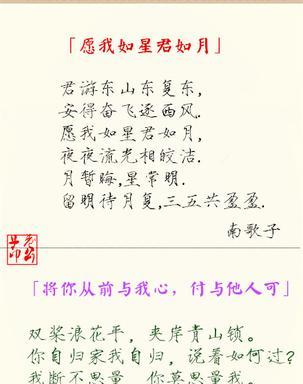 「愿我如星君如月」
君游东山东复东,
安得奋飞逐西风.
愿我如星君如月,
夜夜流光相皎洁.
月暂晦,星常明.
留明待月复,三五共盈盈.
南歌子
「将你从前与我心，付与他人可」
双桨浪花平，夹岸青山锁。
你自归家我自归，说着如何过？
我断不思量，你莫思量我。